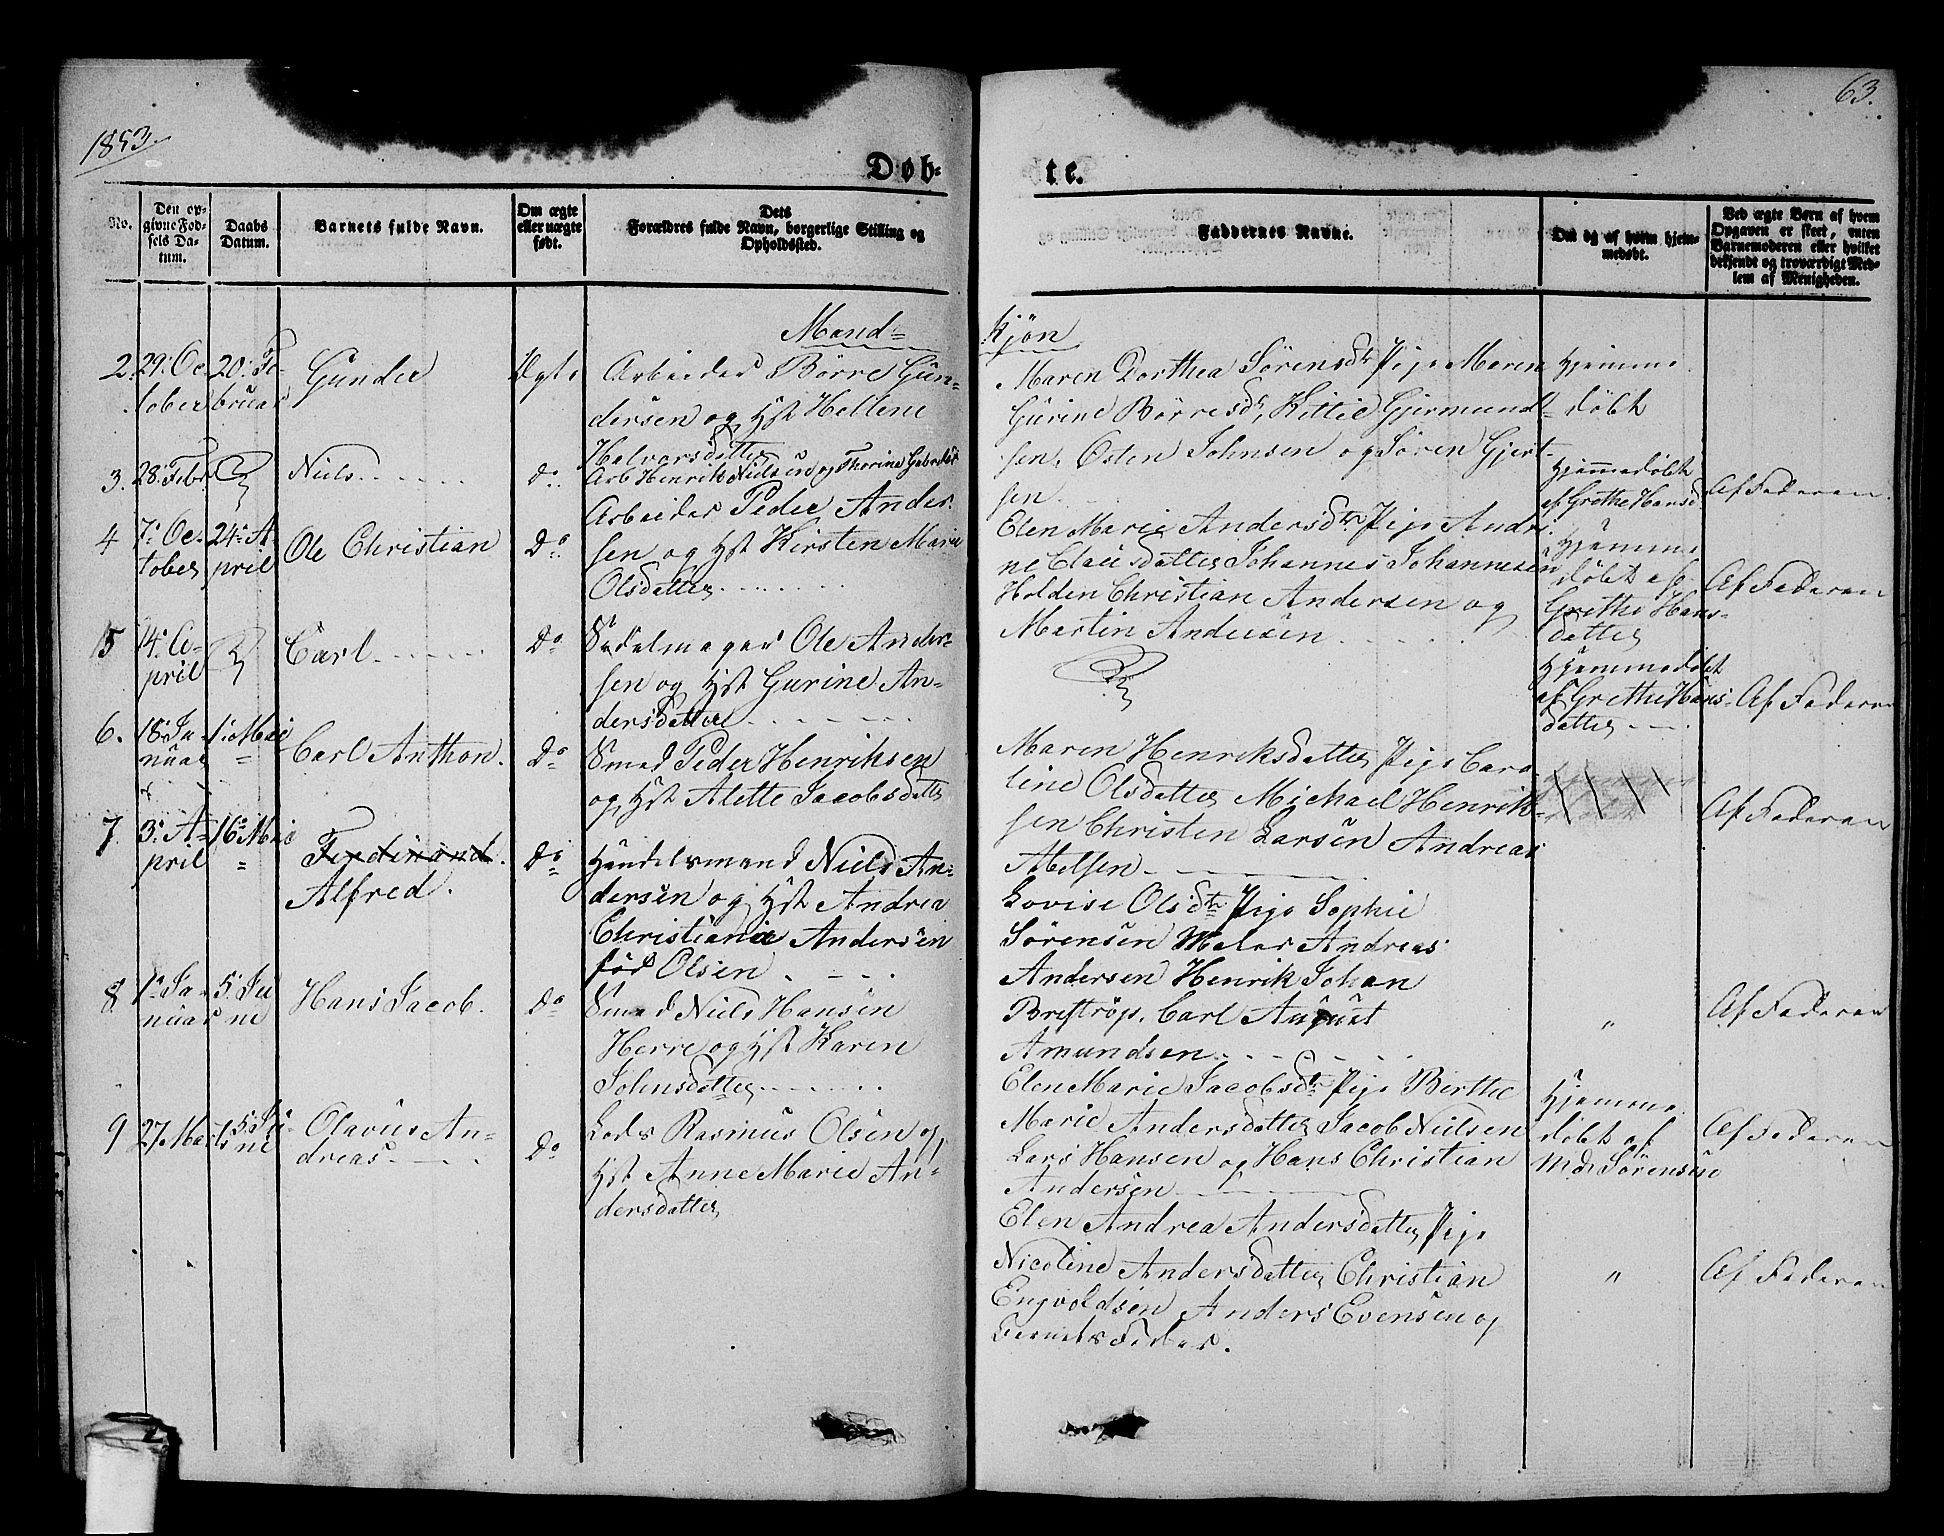 1853.
63.
Døb-
te.
No.
Den op-
givne Fød-
sels Da-
tum.
Daabs
Datum.
Barnets fulde Navn.
Om ægte
eller uægte
født.
Dets
Forældres fulde Navn, borgerlige Stilling og
Opholdssted.
Faddernes Navne.
Om og af hvem hjem-
medøbt.
Ved ægte Børn af hvem
Opgaven er skeet, enten
Barnemoderen eller hvilket
bekjendt og troværdigt Med-
lem af Menigheden.
Mand-
kjön
2. 29: Oc-
tober
20: Fe-
bruar
Gunder
Ægte
Arbeider Börre Gun-
dersen og Hst Hellene
Halvorsdatter
Maren Dorthea Sörensdtr Pige Maren
Gurine Börresd, Kittie Gjermund-
sen, Östen Johnsen og Sören Gjert-
sen
Hjemme
döbt
3. 28: Febr.
Niels
do
Arb Henrik Nielsen og Thorine
Hjemmedöbt
af Grethe Hansd
Af Faderen
4 7: Oc-
tober
24: A-
pril
Ole Christian
Do
Arbeider Peder Ander-
sen og Hst Kirsten Marie
Olsdatter
Elen Marie Andersdtr Pige Andri-
ne Clausdatter Johannes Johannesen
Holden Christian Andersen og
Martin Andersen
Hjemme
döbt af
Grethe Hans-
datter
Af Faderen
5 14: A-
pril
Carl
Do
Sadelmager Ole Ander-
sen og Hst Gurine An-
dersdatter
Hjemmedöbt
af Grethe Hans-
datter
Af Faderen
6. 18: Ja-
nuar
1: Mai
"
Carl Anthon.
Do
Smed Peder Henriksen
og Hst Alette Jacobsdatter
Maren Henriksdatter Pige Caro-
line Olsdatter Michael Henrik-
sen Christen Larsen Andreas
Abelsen
Af Faderen
7. 3: A-
pril
16: Mai
"
Ferdinand.
Alfred.
Do
Handelsmand Niels An-
dersen og Hst Andrea
Christiania Andersen
föd Olsen
Lovise Olsdtr Pige Sophie
Sörensen Maler Andreas
Andersen Henrik Johan
Breströp. Carl August
Amundsen
"
Af Faderen
8 1: Ja-
nuar
5: Ju
ni
Hans Jacob.
Do
Smed Niels Hansen
Herre og Hst Karen
Johnsdatter
Elen Marie Jacobsdtr Pige Berthe
Marie Andersdatter Jacob Nielsen
Lars Hansen og Hans Christian
Andersen
Hjemme
döbt af
Md: Sörensen
Af Faderen
9 27 Marts
5: Ju-
ni
Olavus An-
dreas
Do
Lods Rasmus Olsen og
Hst Anne Marie An-
dersdatter
Elen Andrea Andersdatter Pige
Nicoline Andersdatter Christian
Engvoldsen Anders Evensen og
Barnets Fader.
"
Af Faderen